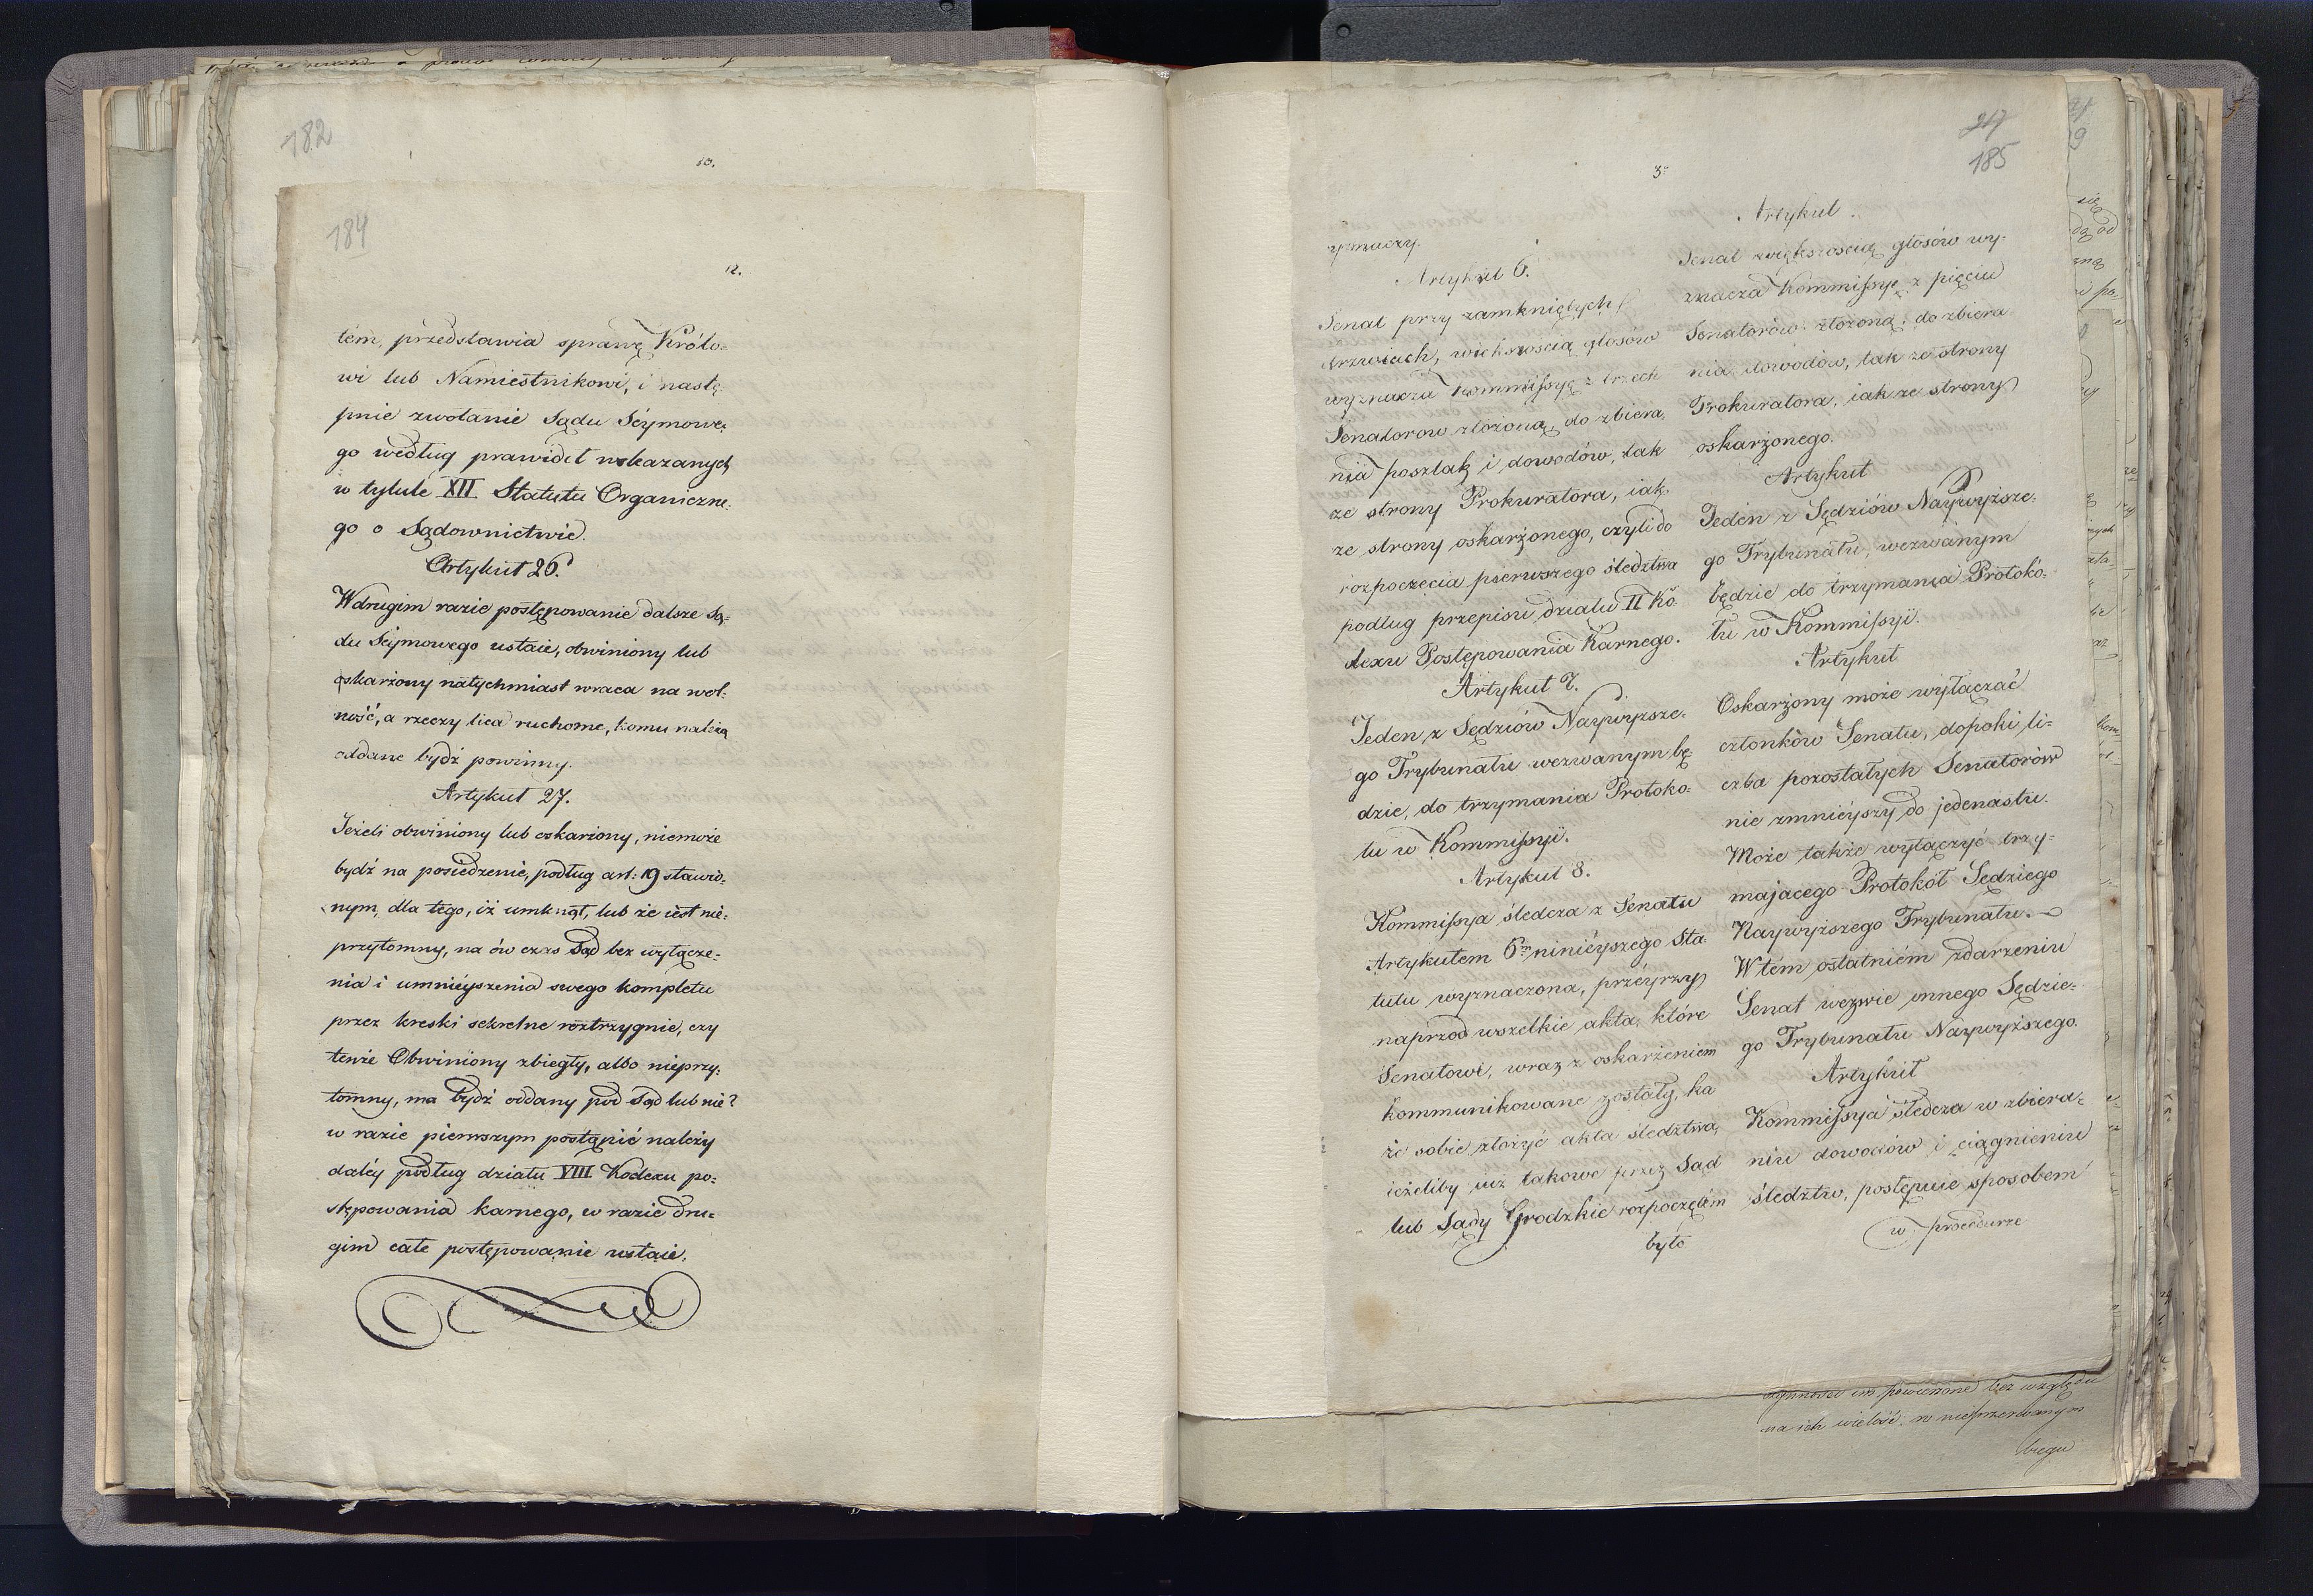 182
10.
184
12.
tém, przedstawia sprawę Królo-
wi lub Namiestnikowi, i nastę-
pnie zwołanie Sądu Séymowe-
go według prawideł wskazanych
w tytule XII Statutu Organiczne-
go o Sądownictwie.
Artykuł 26.
W drugim razie postępowanie dalsze Są-
du Seymowego ustaie, obwiniony lub
oskarżony natychmiast wraca na wol-
ność, a rzeczy lica ruchome, komu należą
oddane bydź powinny.
Artykuł 27.
Jeżeli obwiniony lub oskarżony, niemoże
bydź na posiedzenie, podług art: 19 stawio-
nym, dla tego, iż umknął, lub że iest nie-
przytomny, na ów czas Sąd bez wyłącze-
nia i umniéyszenia swego kompletu
przez kreski sekretne roztrzygnie, czy
tenże Obwiniony zbiegły, albo nieprzy-
tomny, ma bydź oddany pod Sąd lub nie?
w razie pierwszym postąpić należy
daléy podług działu VIII Kodexu po-
stępowania karnego, w razie dru-
gim całe postępowanie ustaie.
217
185
3
Artykuł 6.
Senat przy zamkniętych
drzwiach, większością głosów
wyznacza Kommissyę z trzech
Senatorow złożoną, do zbiera
nia poszlak i dowodów, tak
ze strony Prokuratora, iak
ze strony oskarżonego, czyli do
rozpoczęcia pierwszego śledztwa
podług przepisu działu II Ko-
dexu Postępowania Karnego.
Artykuł 7.
Jeden z Sędziów Naywyższe-
go Trybunału wezwanym bę-
dzie, do trzymania Protoko-
łu w Kommissyi.
Artykuł 8.
Kommissya śledcza z Senatu
Artykułem 6m ninieyszego Sta-
tutu wyznaczona, przéyrzy
naprzod wszelkie akta, które
Senatowi, wraz z oskarżeniem
kommunikowane zostały, ka
że sobie złożyć akta śledztwa,
ieżeliby iuż takowe przez Sąd
lub Sądy Grodzkie rozpoczętem
było
Artykuł.
Senat większością głosów wy-
znacza Kommissyę z pięciu
Senatorów złożoną, do zbiera
nia dowodów, tak ze strony
Prokuratora, iak ze strony
oskarżonego.
Artykuł
Jeden z Sędziów Naywyższe-
go Trybunału, wezwanym
będzie do trzymania Protokó-
łu w Kommissyi.
Artykuł
Oskarżony może wyłączać
członków Senatu, dopoki li-
czba pozostałych Senatorów
nie zmnieyszy do jedenastu.
Może także wyłączyć trzy-
majacego Protokół Sędziego
Naywyższego Trybunału.
W tém ostatniém zdarzeniu
Senat wezwie innego Sędzie-
go Trybunału Naywyższego.
Artykuł
Kommissya śledcza w zbiera-
niu dowodów i ciągnieniu
śledztw, postępuie sposobem
w procedurze
na ich wielość, w nieprzerwanym
biegu